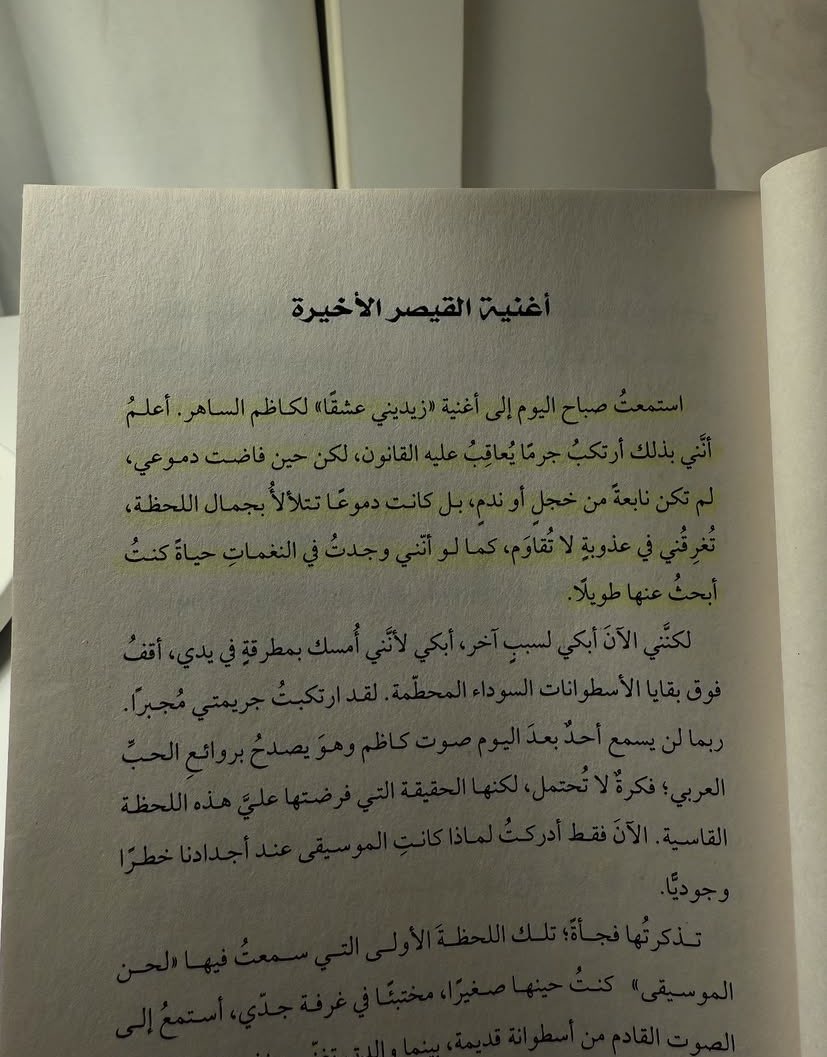 أغنية القيصر الأخيرة
استمعتُ صباح اليوم إلى أغنية «زيديني عشقًا» لكاظم الساهر. أعلمُ
أنَّني بذلك أرتكبُ جرمًا يُعاقِبُ عليه القانون، لكن حين فاضت دموعي،
لم تكن نابعةً من خجلٍ أو ندمٍ، بل كانت دموعًا تتلألأُ بجمال اللحظة،
تُغرِقُني في عذوبةٍ لا تُقاوَم، كما لو أنّني وجدتُ في النغماتِ حياةً كنتُ
أبحثُ عنها طويلًا.
لكنَّني الآنَ أبكي لسببٍ آخر، أبكي لأنَّني أُمسك بمطرقةٍ في يدي، أقفُ
فوق بقايا الأسطوانات السوداء المحطّمة. لقد ارتكبتُ جريمتي مُجبرًا.
ربما لن يسمع أحدٌ بعدَ اليوم صوت كاظم وهوَ يصدحُ بروائعِ الحبِّ
العربي؛ فكرةٌ لا تُحتمل، لكنها الحقيقة التي فرضتها عليَّ هذه اللحظة
القاسية. الآنَ فقط أدركتُ لماذا كانتِ الموسيقى عند أجدادنا خطرًا
وجوديًّا.
تذكرتُها فجأةً؛ تلك اللحظةَ الأولى التي سمعتُ فيها «لحن
الموسيقى» كنتُ حينها صغيرًا، مختبئًا في غرفة جدّي، أستمعُ إلى
الصوت القادم من أسطوانة قديمة، بينما